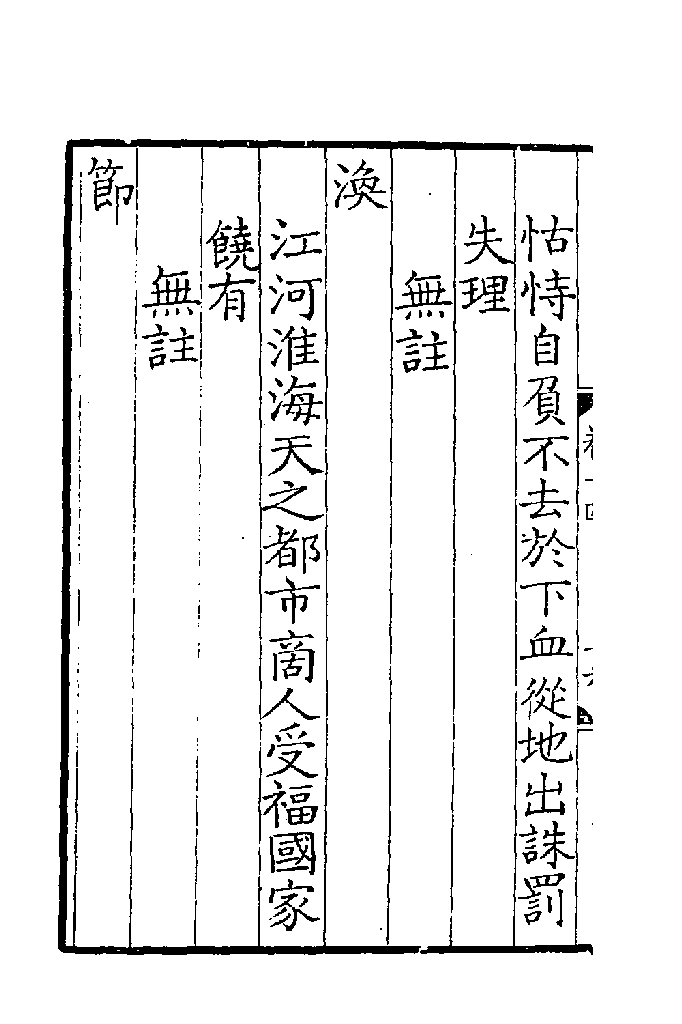 怙恃自負不去於下血從地出誅罰
失理
無註
渙
江河淮海天之都市商人受福國家
饒有
無註
節